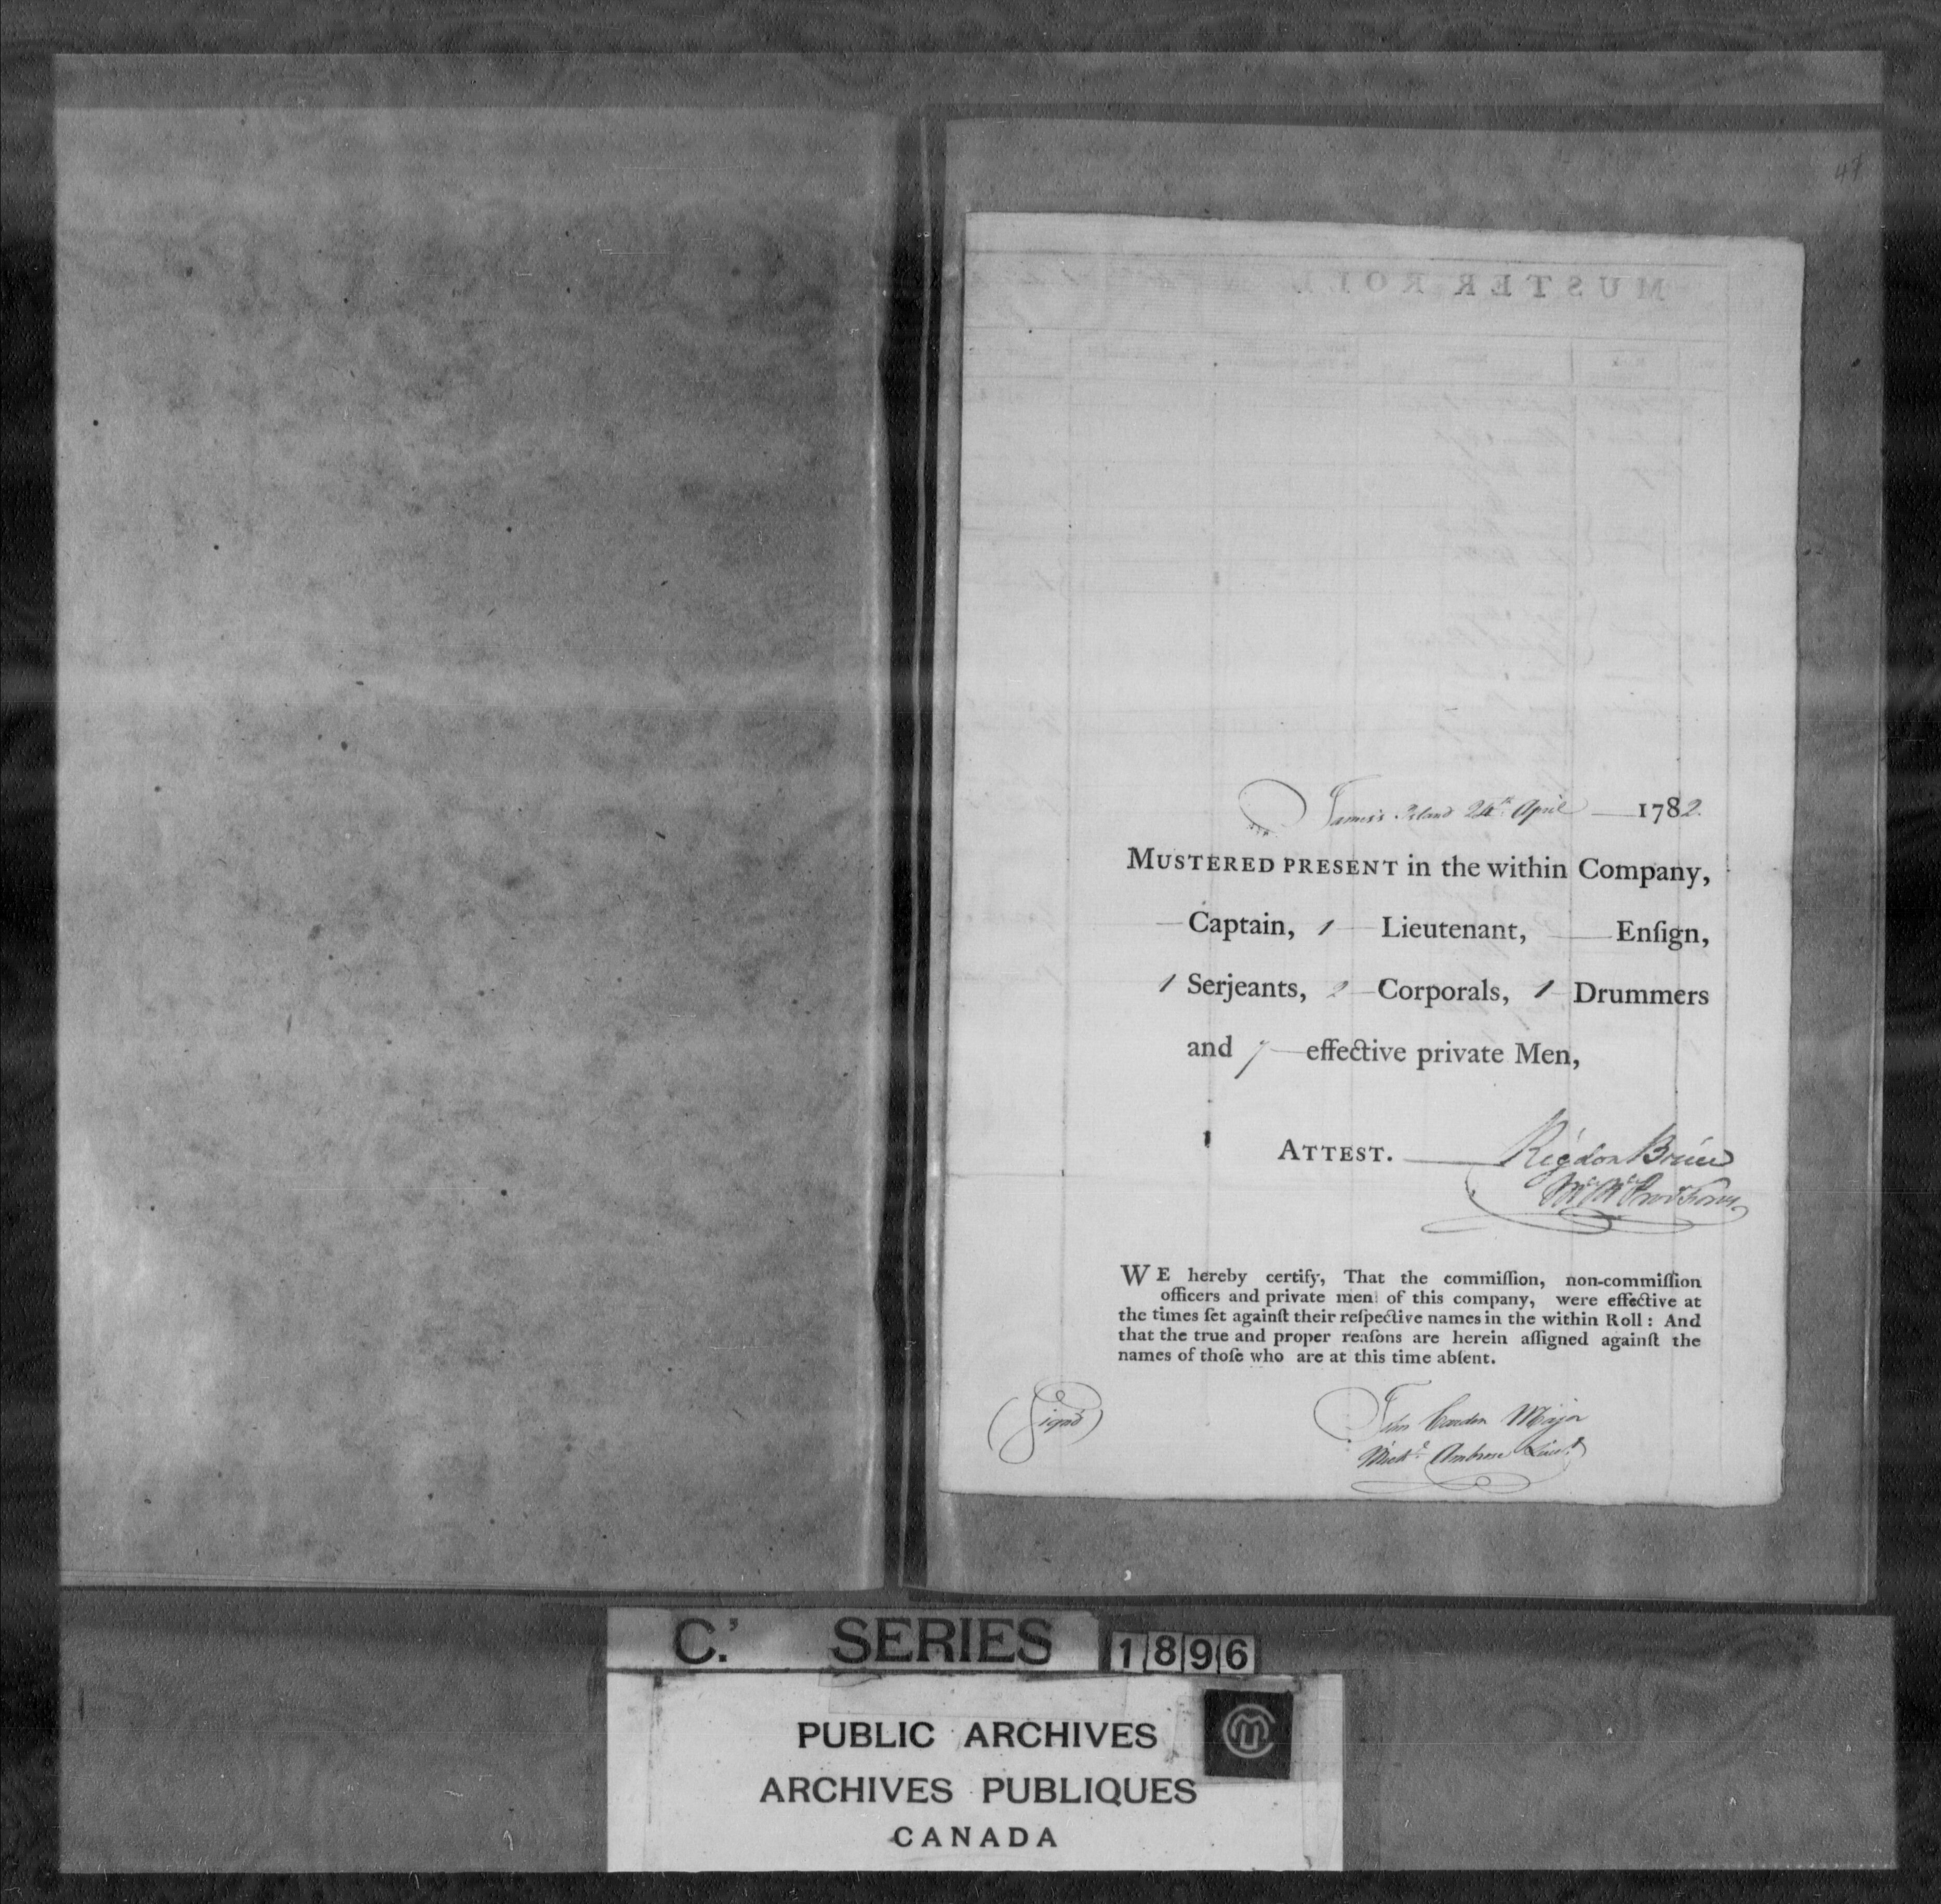 47
MUSTER ROLL
James's Island 24th April — 1782.
MUSTERED PRESENT in the within Company,
— Captain, 1 — Lieutenant, — Enſign,
1 Serjeants, 2 — Corporals, 1 — Drummers
and 7 — effective private Men,
ATTEST. — Rigdon Brice
Mr. Mr. Provl. Forces
WE hereby certify, That the commiſſion, non-commiſſion
officers and private men of this company, were effective at
the times ſet againſt their reſpective names in the within Roll: And
that the true and proper reaſons are herein aſſigned againſt the
names of thoſe who are at this time abſent.
(Signd)
John Carden Major
Michl. Ambrose Lieut.
C.' SERIES 1896
PUBLIC ARCHIVES
ARCHIVES PUBLIQUES
CANADA